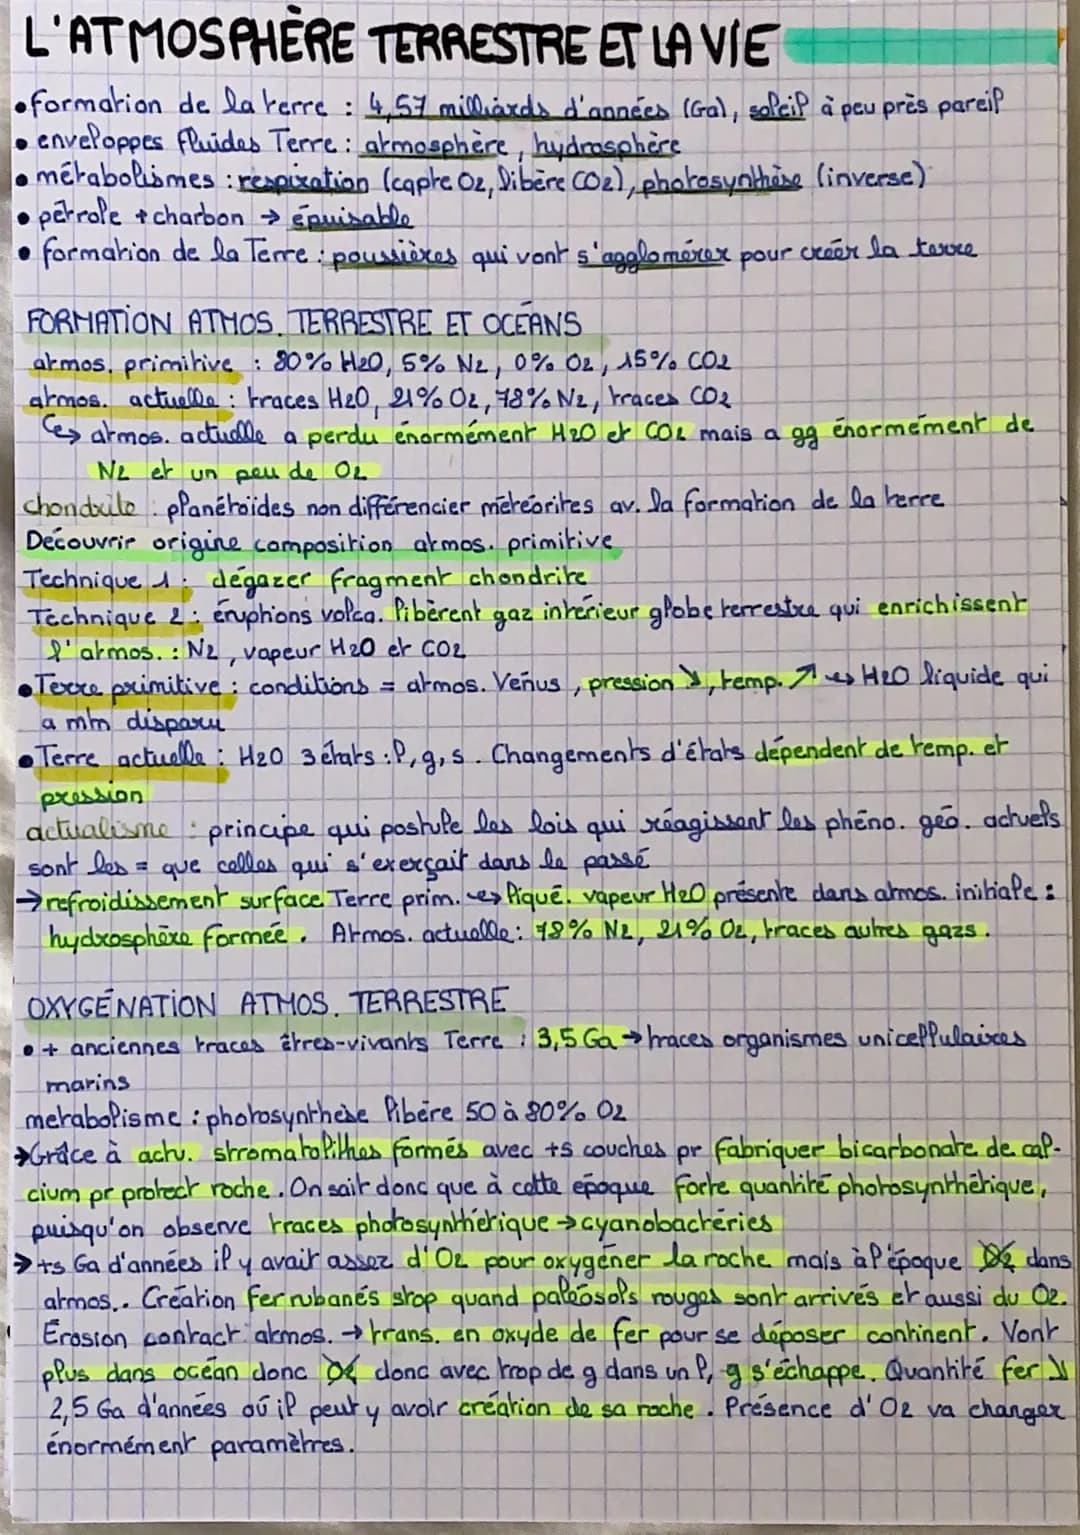 L'ATMOSPHÈRE TERRESTRE ET LA VIE
• formation de la terre : 4,57 milliards d'années (Ga), soleil à peu près pareil
• enveloppes fluides Terre : atmosphère, hydrosphère
• métabolismes : respiration (capte O2, libère CO2), photosynthèse (inverse)
• pétrole + charbon → épuisable
• formation de la Terre : poussières qui vont s'agglomérer pour créér la terre
FORMATION ATMOS. TERRESTRE ET OCÉANS
atmos. primitive : 80% H2O, 5% N2, 0% O2, 15% CO2
atmos. actuelle : traces H2O, 21% O2, 78% N2, traces CO2
↳ atmos. actuelle a perdu énormément H2O et CO2 mais a gg énormément de
N2 et un peu de O2
chondrite : planétoïdes non différencier météorites av. la formation de la terre
Découvrir origine composition atmos. primitive
Technique 1 : dégazer fragment chondrite
Technique 2 : éruptions volca. libèrent gaz intérieur globe terrestre qui enrichissent
l'atmos. : N2, vapeur H2O et CO2
• Terre primitive : conditions = atmos. Vénus, pression ↘, temp. ↗ ↔ H2O liquide qui
a mm disparu
• Terre actuelle : H2O 3 états : l, g, s. Changements d'états dépendent de temp. et
pression
actualisme : principe qui postule les lois qui réagissent les phéno. géo. actuels
sont les = que celles qui s'exerçait dans le passé
→ refroidissement surface Terre prim. ↔ liqué. vapeur H2O présente dans atmos. initiale :
hydrosphère formée. Atmos. actuelle : 78% N2, 21% O2, traces autres gazs.
OXYGÉNATION ATMOS. TERRESTRE
• + anciennes traces êtres-vivants Terre : 3,5 Ga → traces organismes unicellulaires
marins
metabolisme : photosynthèse libère 50 à 80% O2
→ Grâce à actv. stromatolithes formés avec +s couches pr fabriquer bicarbonate de cal-
cium pr protect roche. On sait donc que à cette époque forte quantité photosynthétique,
puisqu'on observe traces photosynthétique → cyanobactéries
→ +s Ga d'années il y avait assez d'O2 pour oxygéner la roche mais à l'époque O2 dans
atmos.. Création fer rubanés stop quand paléosols rouges sont arrivés et aussi du O2.
Érosion contact atmos. → trans. en oxyde de fer pour se déposer continent. Vont
plus dans océan donc O2 donc avec trop de g dans un l, g s'échappe. Quantité fer ↘
2,5 Ga d'années où il peut y avoir création de sa roche. Présence d'O2 va changer
énormément paramètres.